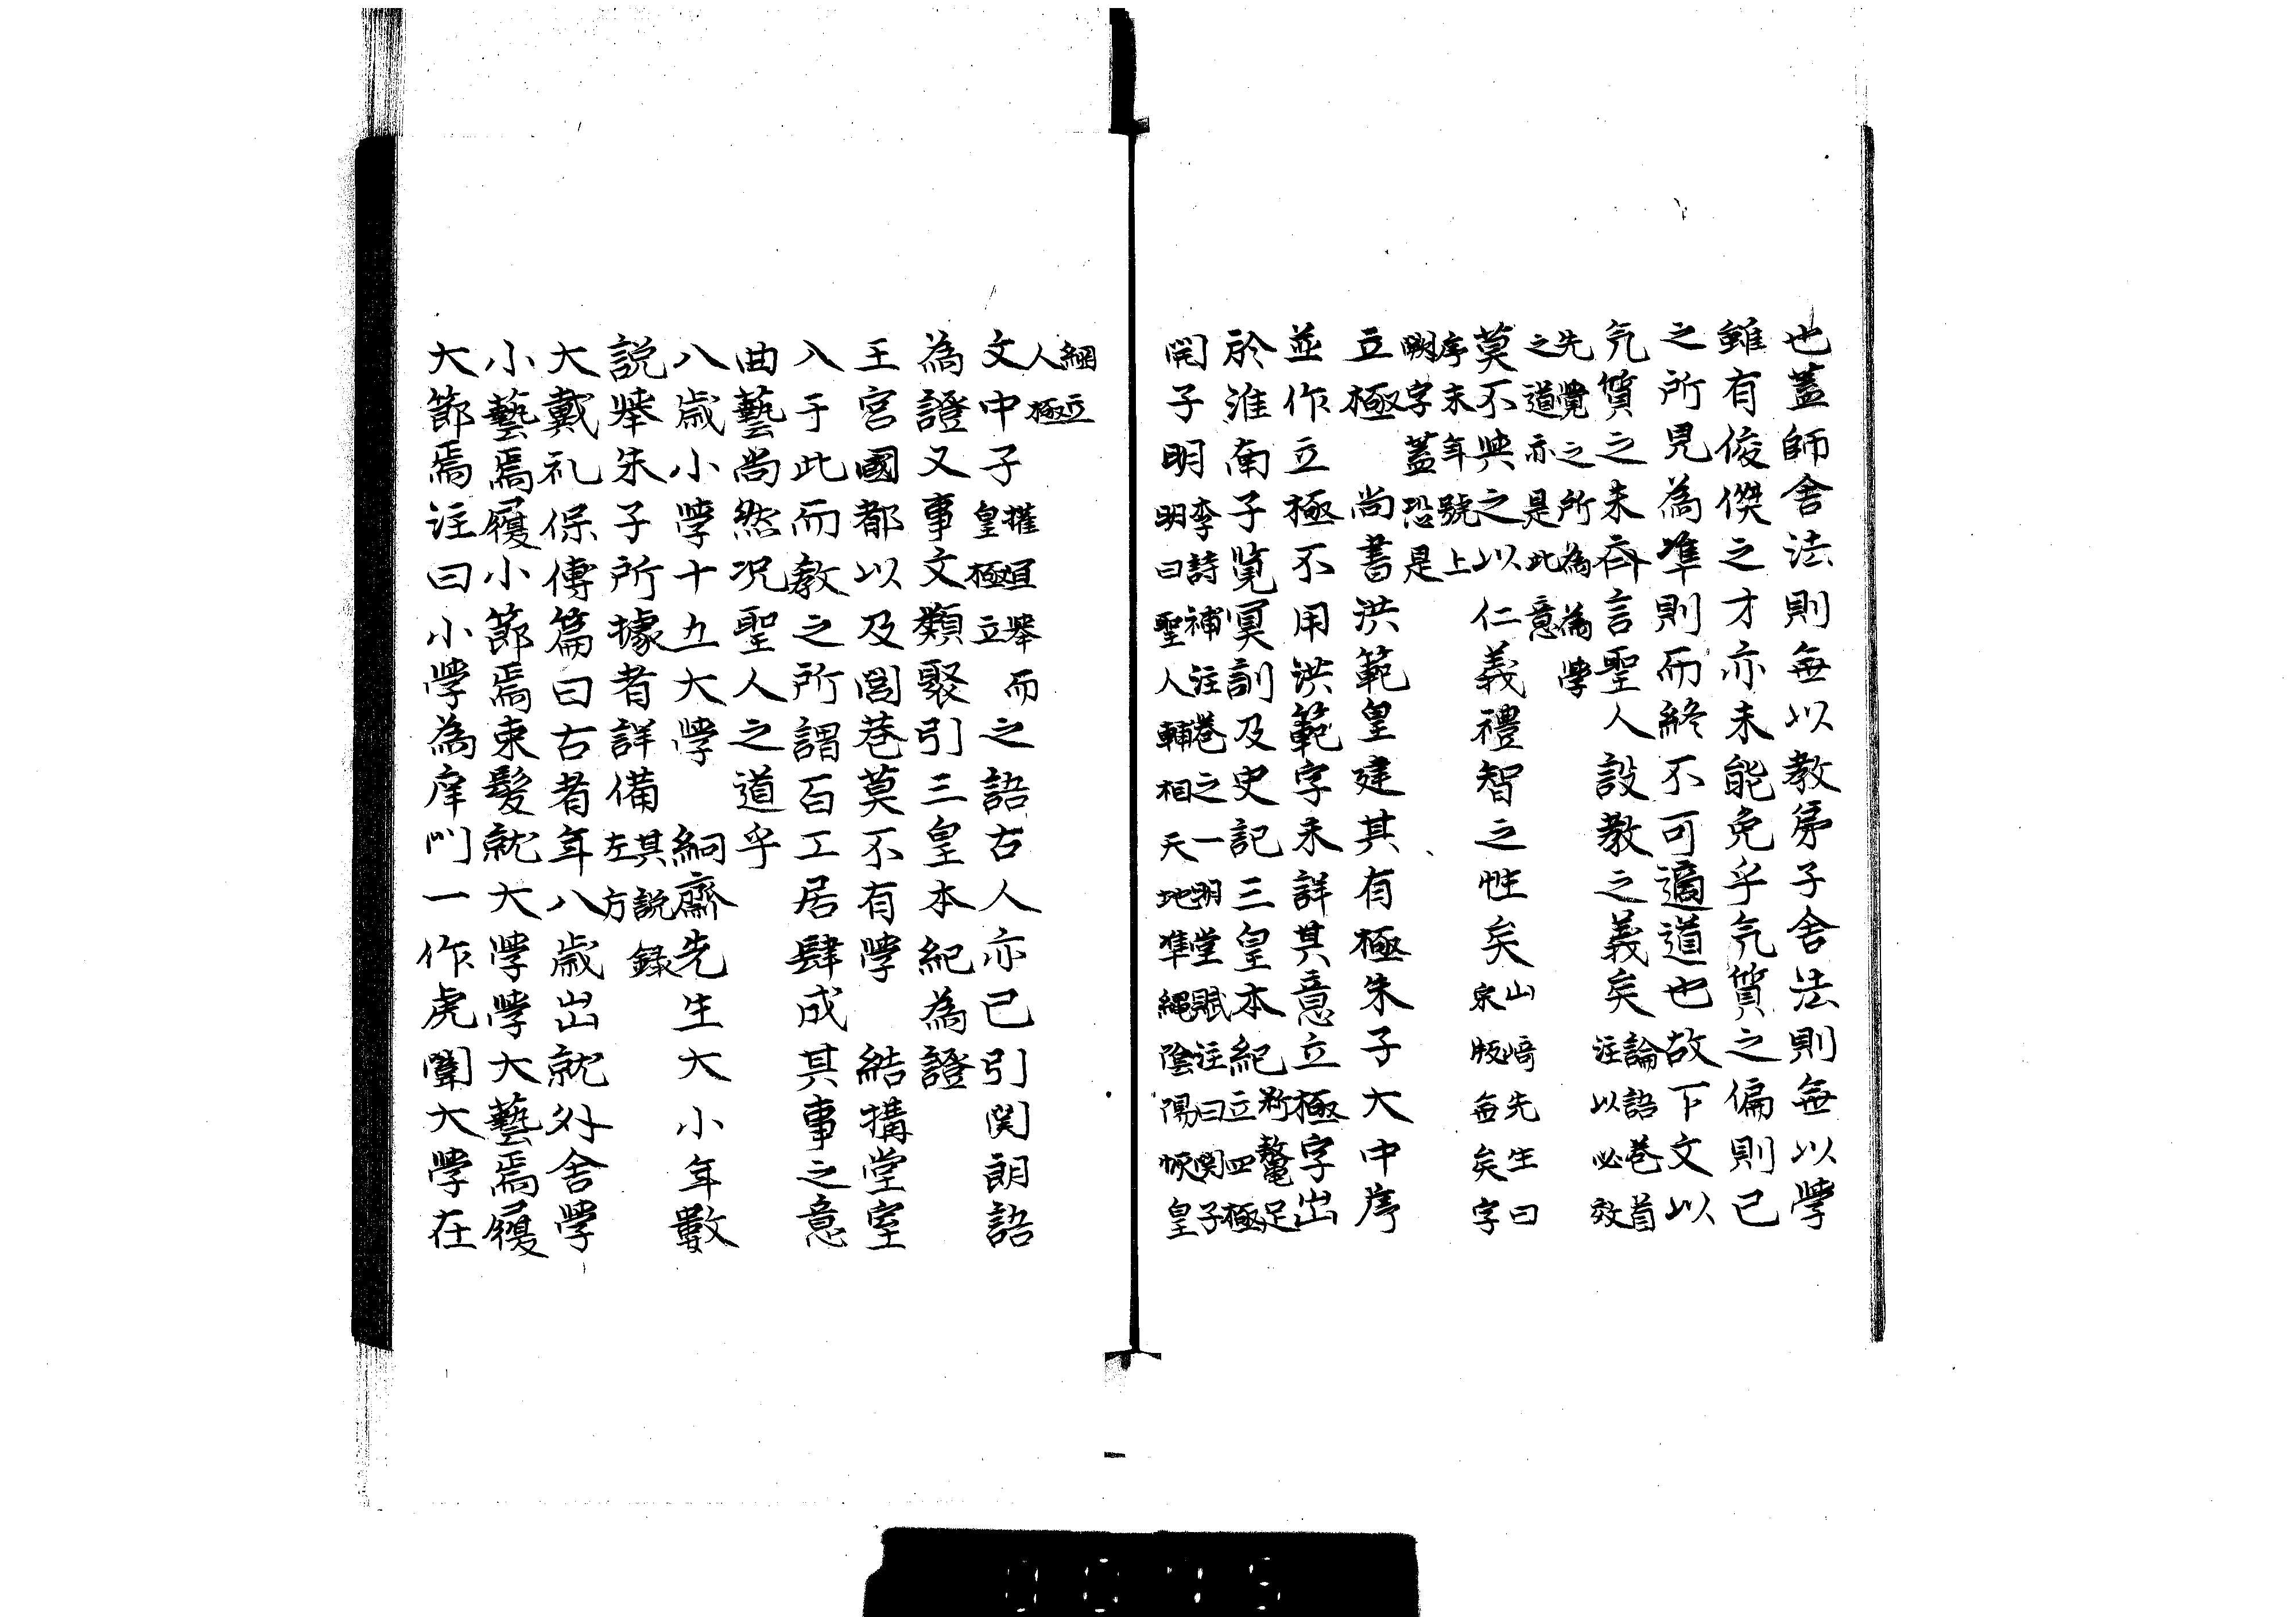 也蓋師舍法則無以教弟子舍法則無以學
雖有俊傑之才亦未能免乎気質之偏則己
之所見為準則而終不可適道也故下文以
気質之未斉言聖人設教之義矣論語卷首注以必效
先覺之所為為學之道亦是此意
莫不與之以仁義禮智之性矣山﨑先生曰宋版無矣字
序末年號上闕字蓋恐是
立極　尚書洪範皇建其有極朱子大中序
並作立極不用洪範字未詳其意立極字出
於淮南子覧冥訓及史記三皇本紀断鼇足立四極
関子明李詩補注卷之一明堂賦注曰関子明曰聖人輔相天地準繩陰陽恢皇
綱立人極
文中子摧皇極立而之語古人亦已引関朗語
為證又事文類聚引三皇本紀為證
王宮國都以及閭巷莫不有學　結搆堂室
入于此而教之所謂百工居肆成其事之意
曲藝尚然況聖人之道乎
八歳小學十五大學　絅齋先生大小年數
説挙朱子所據者詳備其説録左方
大戴礼保傅篇曰古者年八歳出就外舍學
小藝焉履小節焉束髪就大學學大藝焉履
大節焉注曰小學為庠門一作虎闈大學在